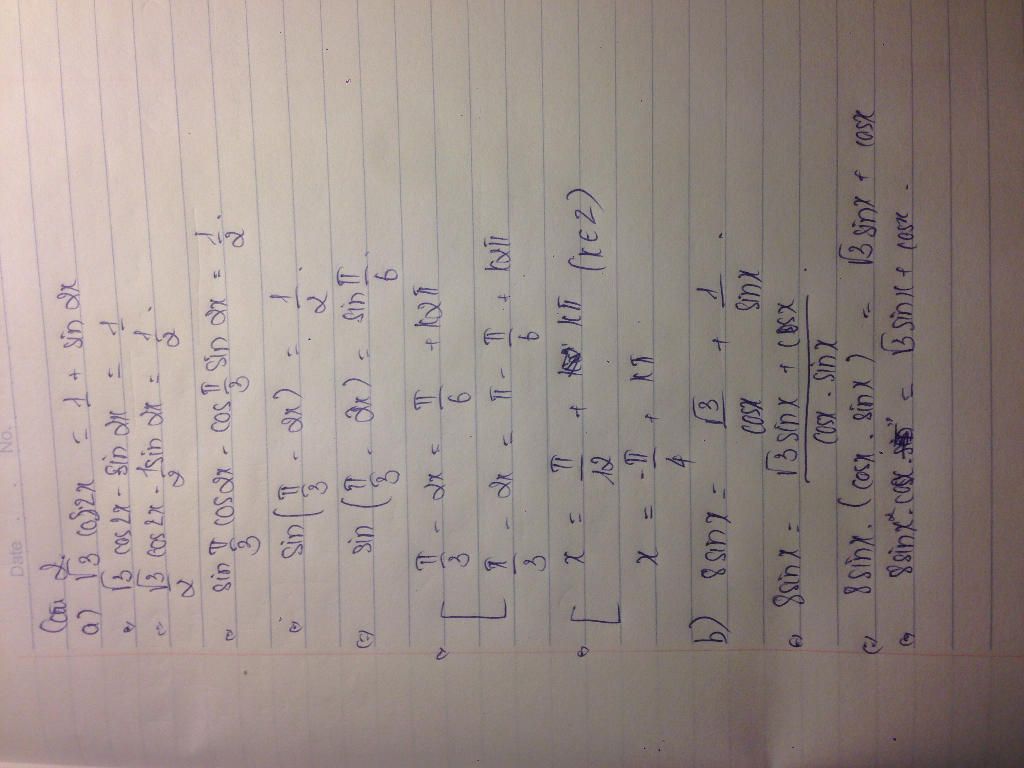 Date . . No.
Câu 2.
a) √3 cos2x = 1 + sin 2x
⇔ √3 cos2x - sin 2x = 1
⇔ √3/2 cos2x - 1/2 sin 2x = 1/2.
⇔ sin π/3 cos2x - cos π/3 sin 2x = 1/2.
⇔ sin(π/3 - 2x) = 1/2.
⇔ sin(π/3 - 2x) = sin π/6
⇔ [ π/3 - 2x = π/6 + k2π
π/3 - 2x = π - π/6 + k2π
⇔ [ x = π/12 + kπ (k∈Z)
x = -π/4 + kπ
b) 8sinx = √3/cosx + 1/sinx.
⇔ 8sinx = (√3 sinx + cosx)/(cosx . sinx)
⇔ 8sinx.(cosx . sinx) = √3 sinx + cosx
⇔ 8sin²x.cosx = √3 sinx + cosx.